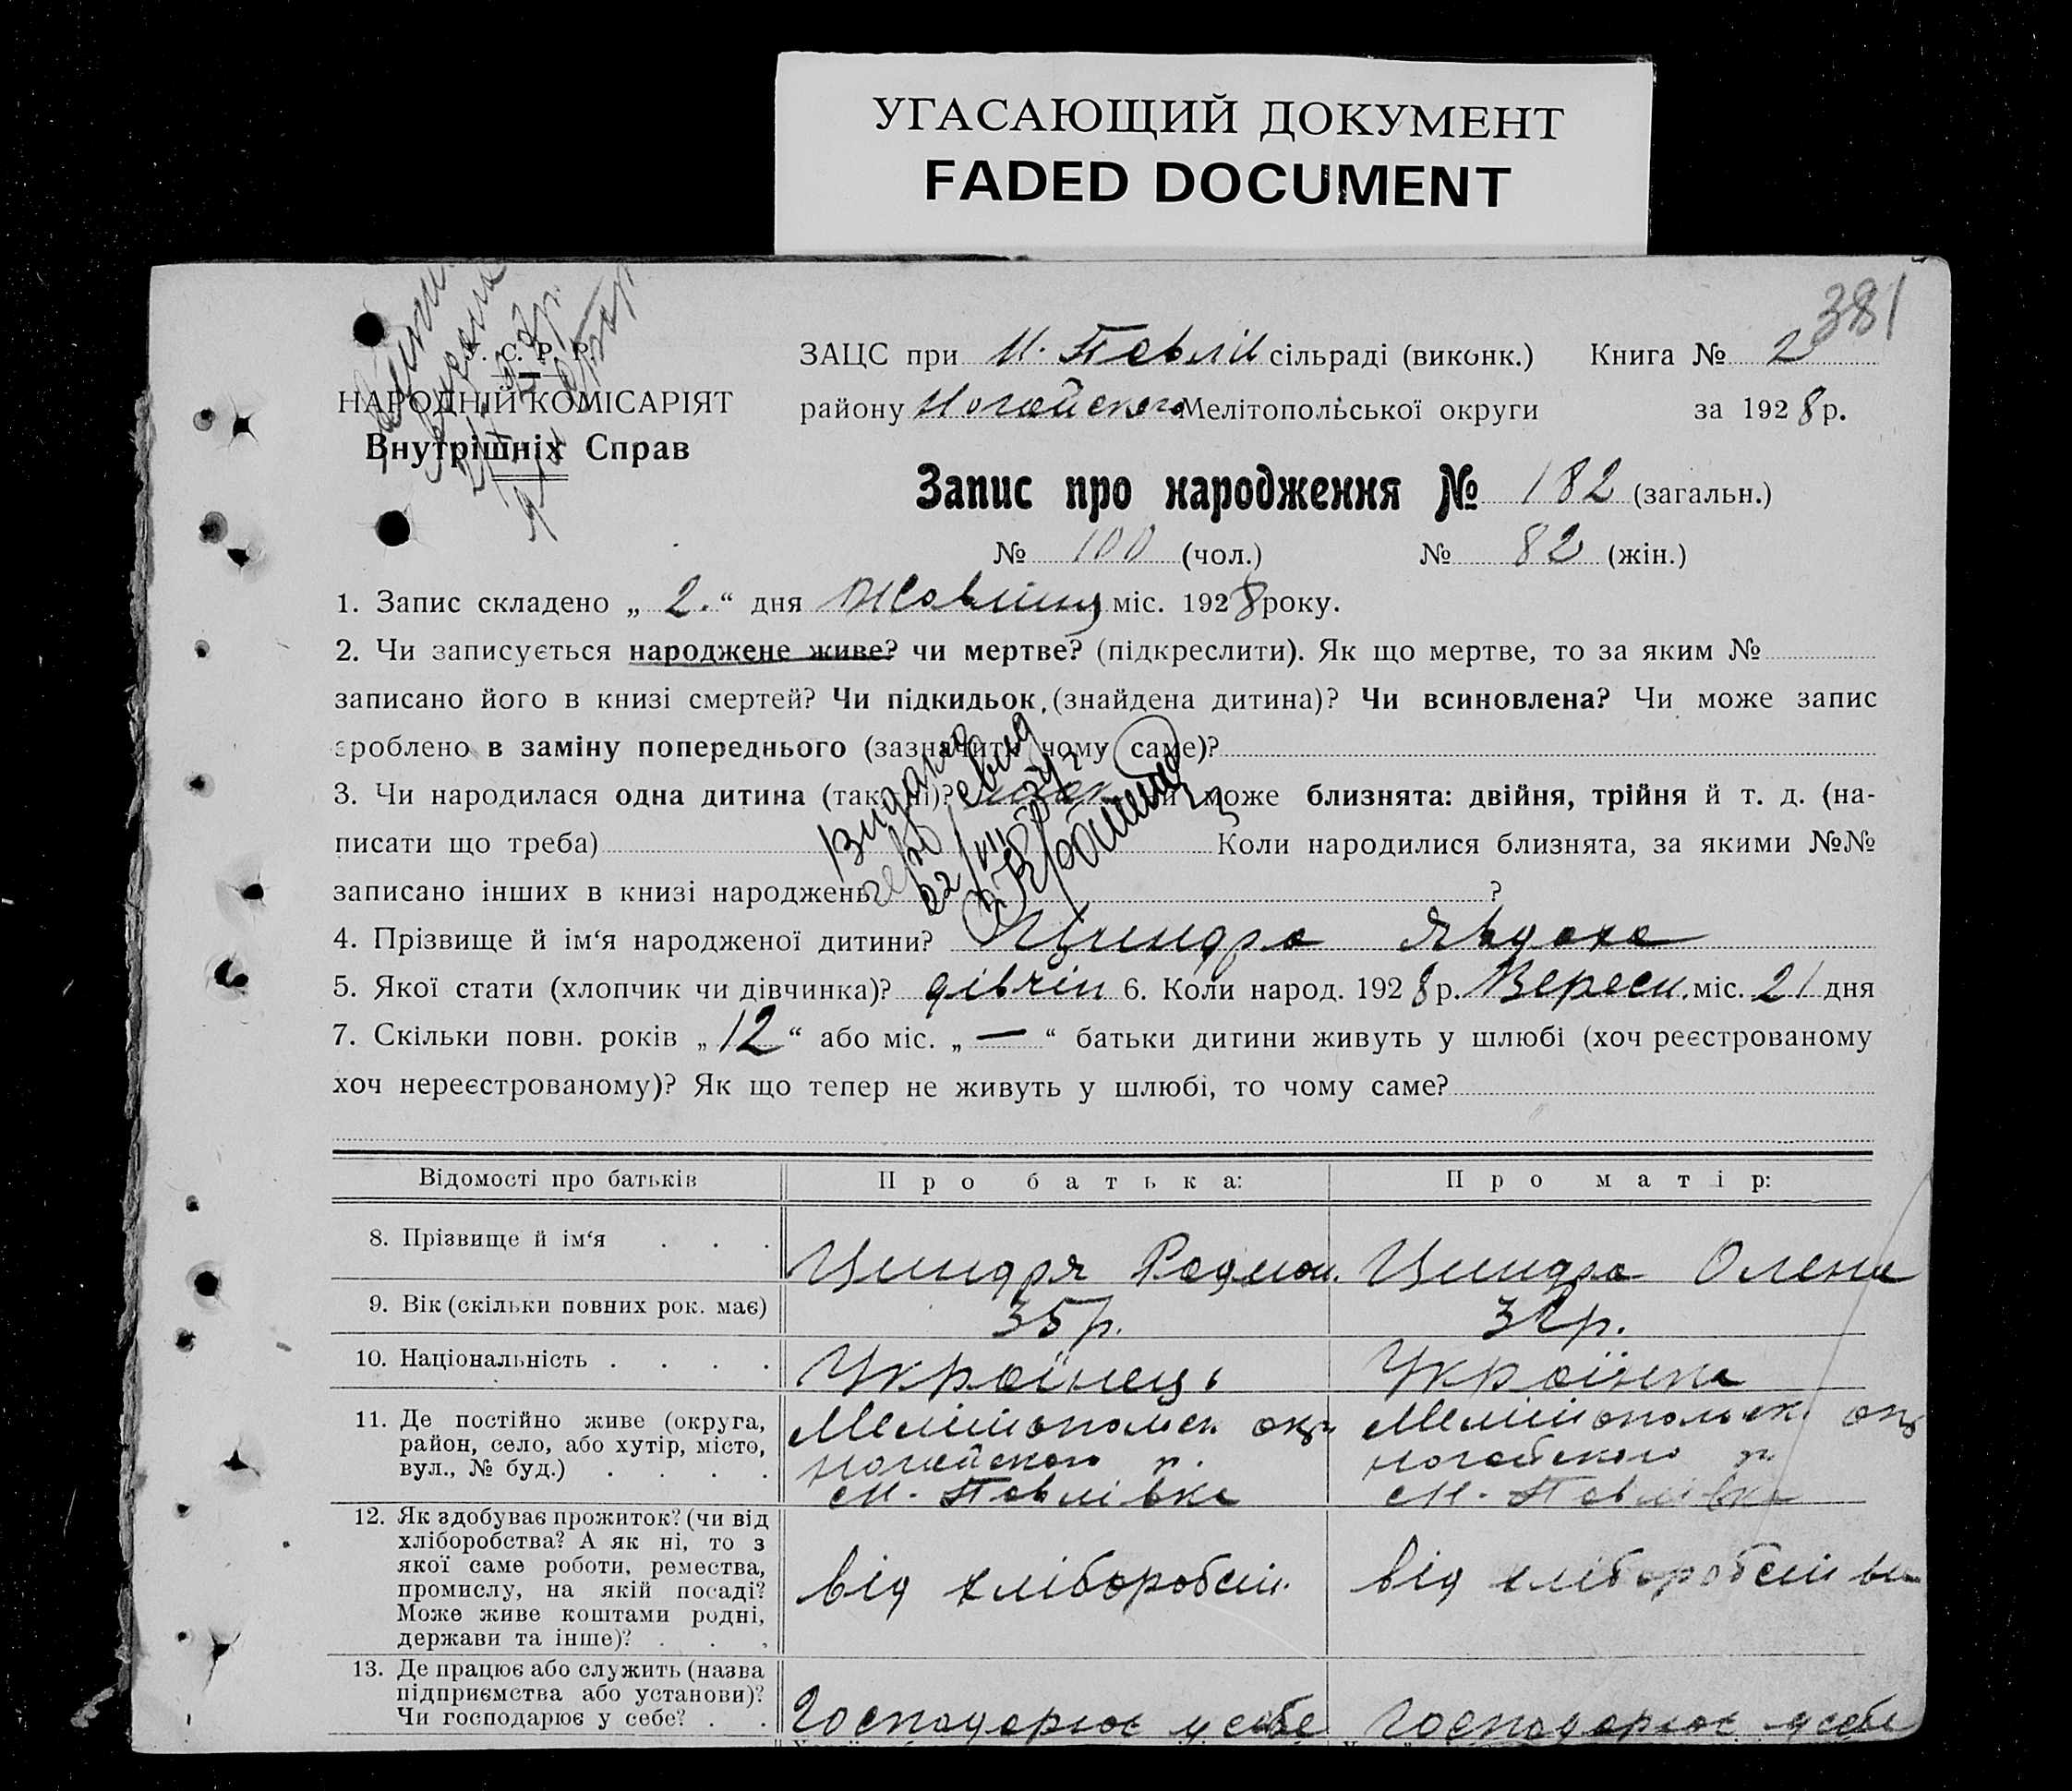 УГАСАЮЩИЙ ДОКУМЕНТ
FADED DOCUMENT
381
С. Р. Р.
НАРОДНІЙ КОМІСАРІЯТ
Внутрішніх Справ
ЗАЦС при Н. Павлів сільраді (виконк.) Книга № 2
району Ногайського Мелітопольської округи за 1928 р.
Запис про народження № 182 (загальн.)
№ 100 (чол.) № 82 (жін.)
1. Запис складено „ 2. “ дня Жовтня міс. 1928 року.
2. Чи записується народжене живе? чи мертве? (підкреслити). Як що мертве, то за яким №
записано його в книзі смертей? Чи підкидьок (знайдена дитина)? Чи всиновлена? Чи може запис
зроблено в заміну попереднього (зазначити чому саме)?
3. Чи народилася одна дитина (так, ні)? так Чи може близнята: двійня, трійня й т. д. (на-
писати що треба) Коли народилися близнята, за якими №№
записано інших в книзі народжень ?
Видано
4. Прізвище й ім‘я народженої дитини? Циндря Явдоха
5. Якої стати (хлопчик чи дівчинка)? дівчін 6. Коли народ. 1928 р. Вересн. міс. 21 дня
7. Скільки повн. років „ 12 “ або міс. „ — “ батьки дитини живуть у шлюбі (хоч реєстрованому
хоч нереєстрованому)? Як що тепер не живуть у шлюбі, то чому саме?
Відомості про батьків Про батька: Про матір:
8. Прізвище й ім‘я . . . Циндря Родион. Циндра Олена
9. Вік (скільки повних рок. має) 35 р. 32 р.
10. Національність . . . . Українець Українка
11. Де постійно живе (округа,
район, село, або хутір, місто,
вул., № буд.) . . . .
Мелітопольск. окр
Ногайського р.
Н. Павлівка
Мелітопольськ. окр
Ногайського р.
Н. Павлівка
12. Як здобуває прожиток? (чи від
хліборобства? А як ні, то з
якої саме роботи, ремества,
промислу, на якій посаді?
Може живе коштами родні,
держави та інше)? . . .
від хліборобст.
від хліборобства
13. Де працює або служить (назва
підприємства або установи)?
Чи господарює у себе? . .
Господарює у себе
Господарює у себе